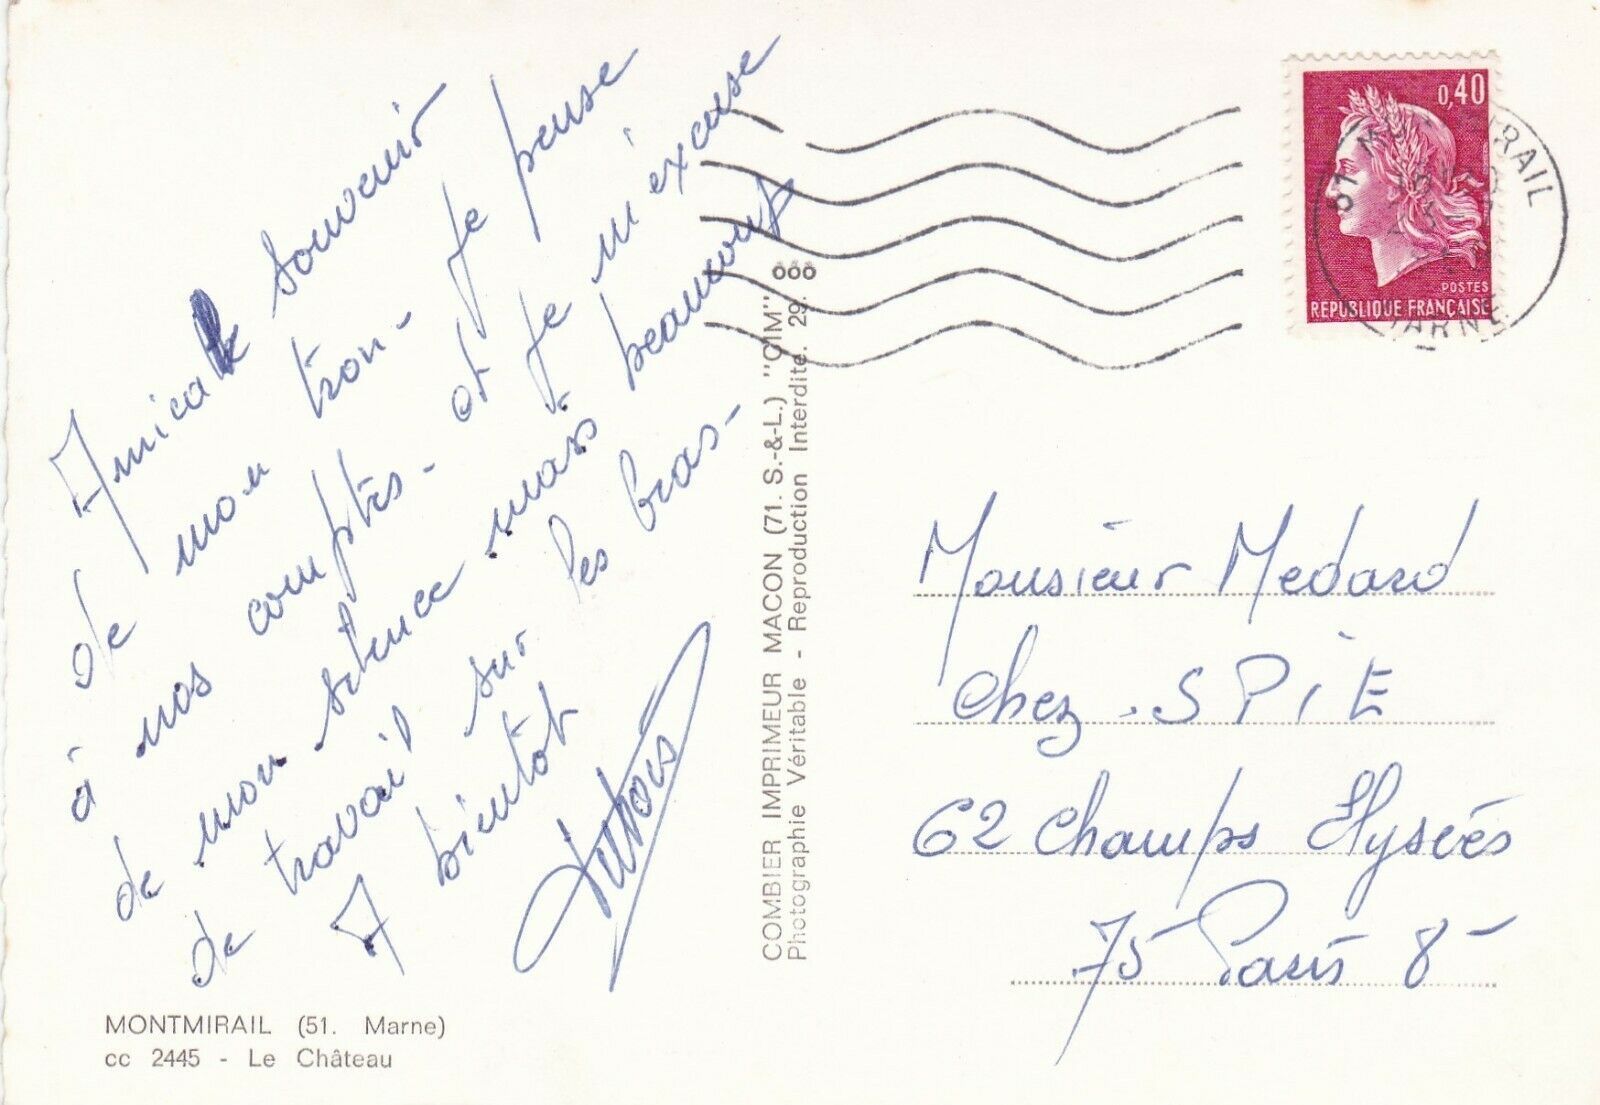 Amical souvenir
de mon trou - Je pense
à nos comptes - et je m'excuse
de mon silence mais beaucoup
de travail sur les bras -
A bientôt
Dubois
MONTMIRAIL (51. Marne)
cc 2445 - Le Château
COMBIER IMPRIMEUR MACON (71. S.-&-L.) "CIM"
Photographie Véritable - Reproduction Interdite. 29. 000
0,40
POSTES
REPUBLIQUE FRANÇAISE
51 MONTMIRAIL
MARNE
Monsieur Medard
Chez S P i E
62 Champs Elysées
75 Paris 8